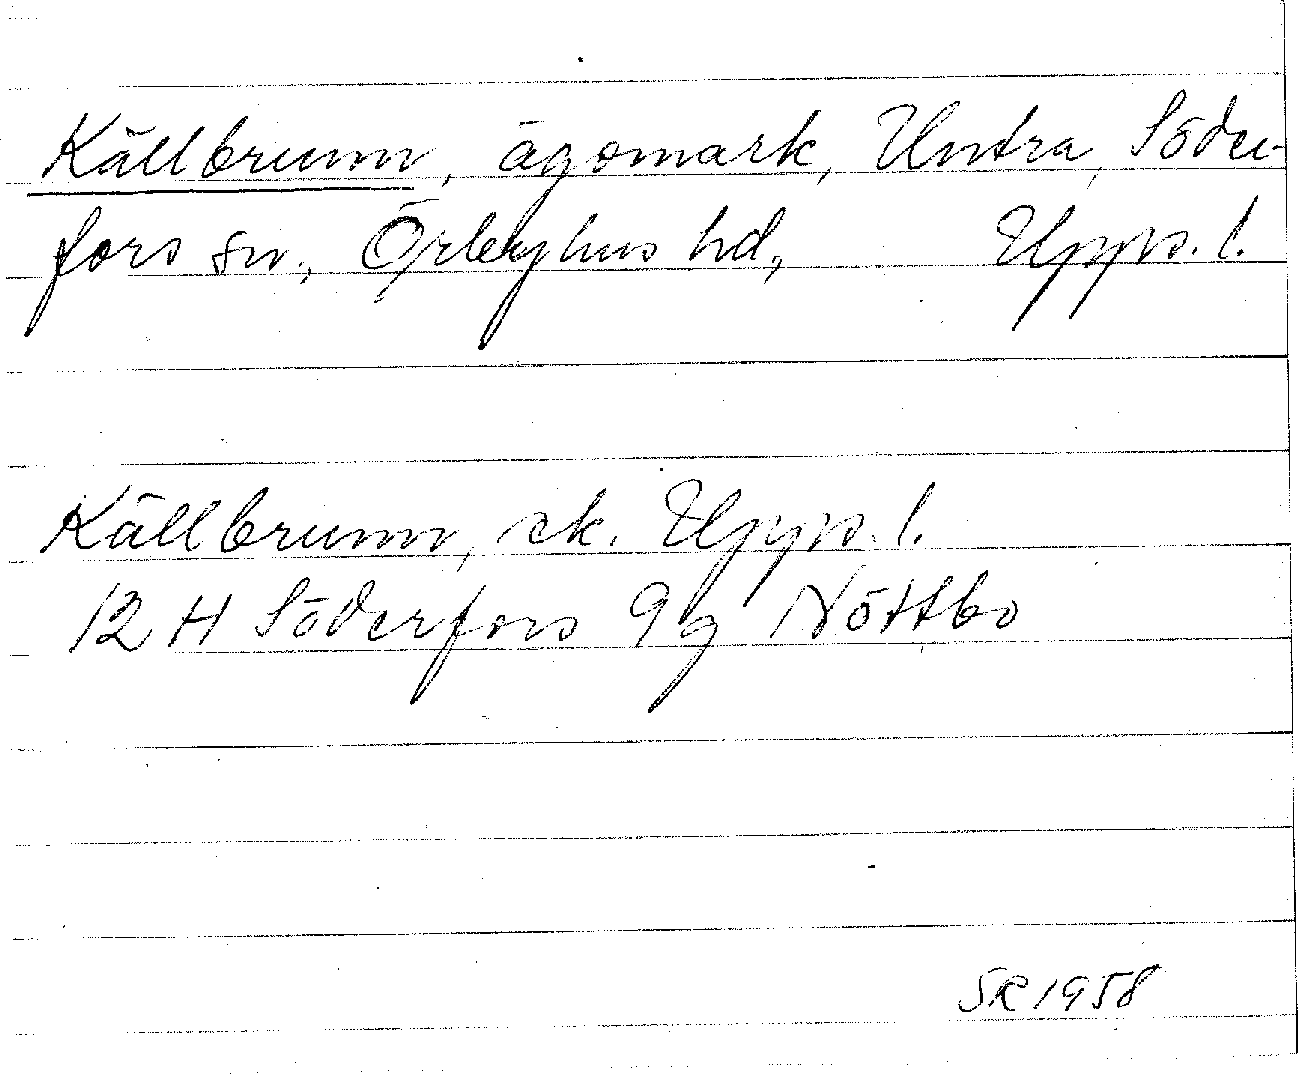 Källbrunn, ägomark, Untra, Söder-
fors sn., Örbyhus hd, Upps. l.
Källbrunn, ek. Upps. l.
12 H Söderfors 9g Nöttbo
SR 1958